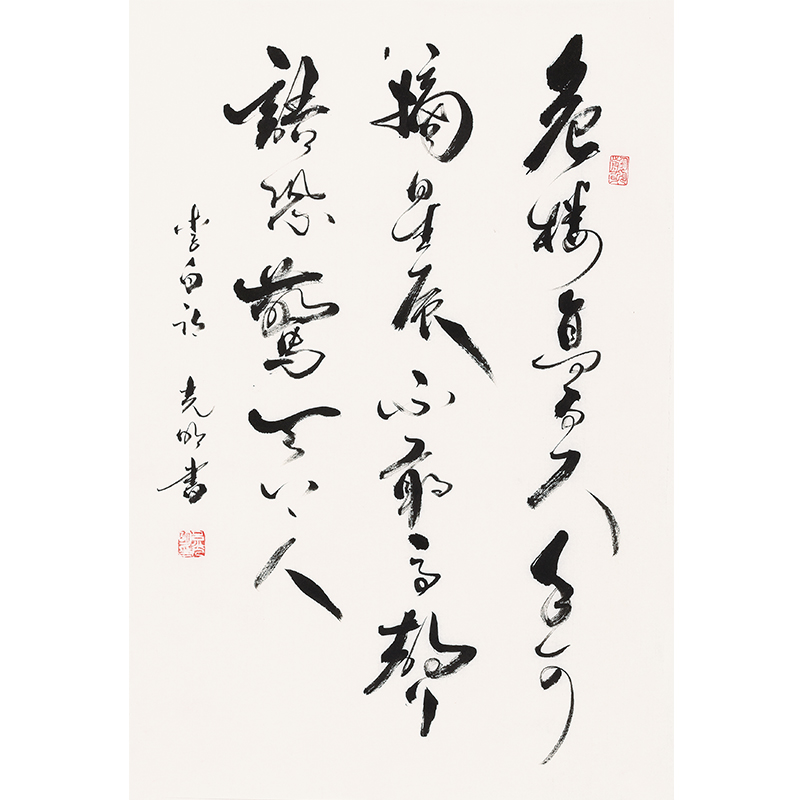 危楼高百尺手可
摘星辰不敢高聲
語恐驚天上人
李白詩 克明書